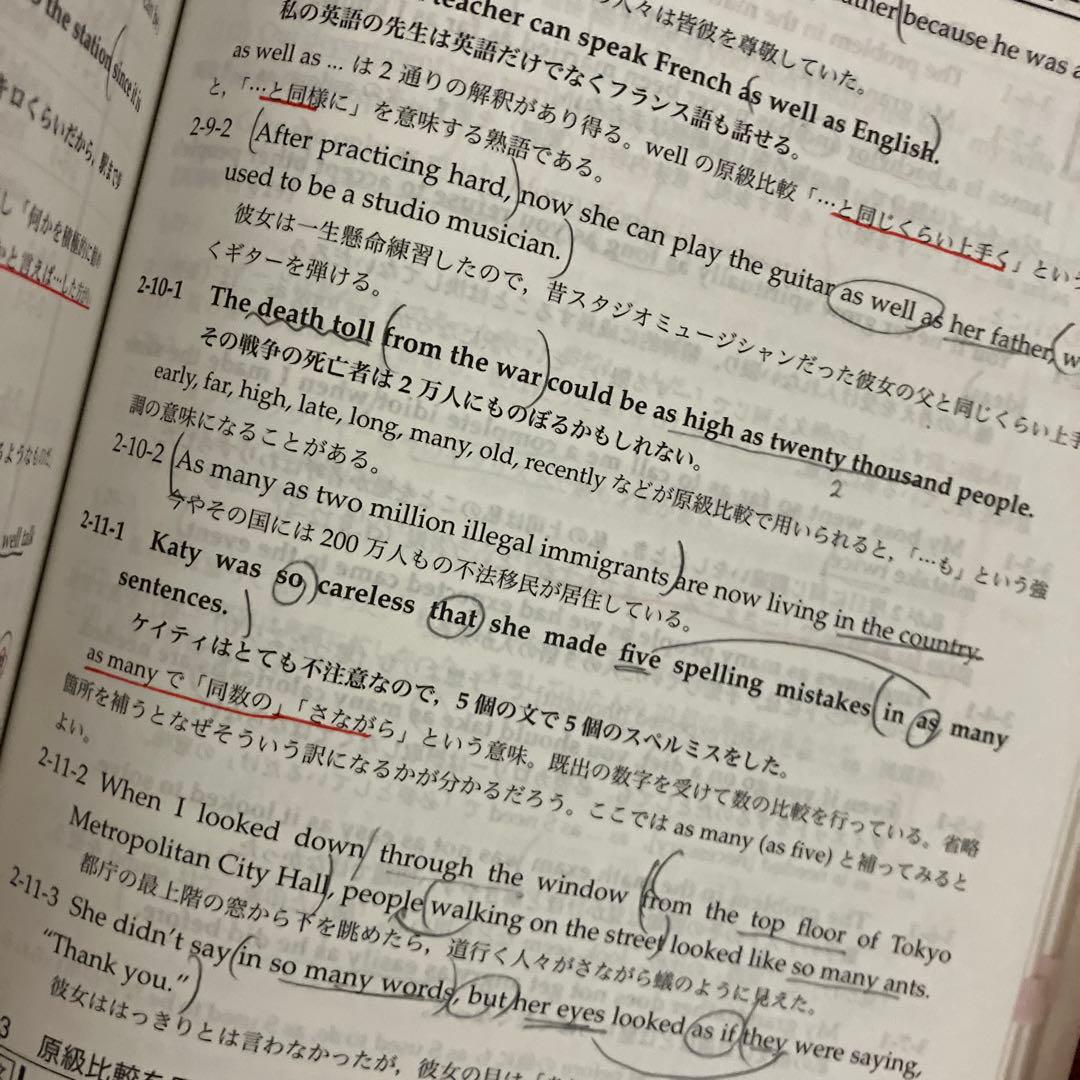 ather because he was a
人々は皆彼を尊敬していた。
teacher can speak French as well as English.
私の英語の先生は英語だけでなくフランス語も話せる。
as well as ... は2通りの解釈があり得る。wellの原級比較「…と同じくらい上手く」という
と,「…と同様に」を意味する熟語である。
2-9-2 After practicing hard, now she can play the guitar as well as her father, w
used to be a studio musician.
彼女は一生懸命練習したので, 昔スタジオミュージシャンだった彼女の父と同じくらい上手
くギターを弾ける。
2-10-1 The death toll from the war could be as high as twenty thousand people.
2
その戦争の死亡者は2万人にものぼるかもしれない。
early, far, high, late, long, many, old, recently などが原級比較で用いられると,「…も」という強
調の意味になることがある。
2-10-2 As many as two million illegal immigrants are now living in the country.
今やその国には200万人もの不法移民が居住している。
2-11-1 Katy was so careless that she made five spelling mistakes in as many
sentences.
ケイティはとても不注意なので, 5個の文で5個のスペルミスをした。
as many で「同数の」「さながら」という意味。既出の数字を受けて数の比較を行っている。省略
箇所を補うとなぜそういう訳になるかが分かるだろう。ここでは as many (as five) と補ってみると
よい。
2-11-2 When I looked down through the window from the top floor of Tokyo
Metropolitan City Hall, people walking on the street looked like so many ants.
都庁の最上階の窓から下を眺めたら, 道行く人々がさながら蟻のように見えた。
2-11-3 She didn't say in so many words, but her eyes looked as if they were saying,
"Thank you."
彼女ははっきりとは言わなかったが, 彼女の目は「
3 原級比較を
the station since it is
キロくらいだから, 駅まで歩
し「何かを積極的に
かと言えば…した方が
るようなものだ。
well talk